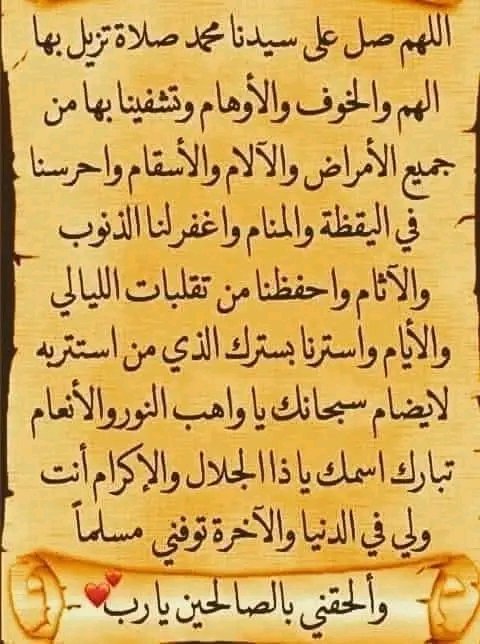 اللهم صل على سيدنا محمد صلاة تزيل بها
الهم والخوف والأوهام وتشفينا بها من
جميع الأمراض والآلام والأسقام واحرسنا
في اليقظة والمنام واغفر لنا الذنوب
والآثام واحفظنا من تقلبات الليالي
والأيام واسترنا بسترك الذي من استتر به
لايضام سبحانك يا واهب النور والأنعام
تبارك اسمك يا ذا الجلال والإكرام أنت
ولي في الدنيا والآخرة توفني مسلماً
وألحقني بالصالحين يا رب